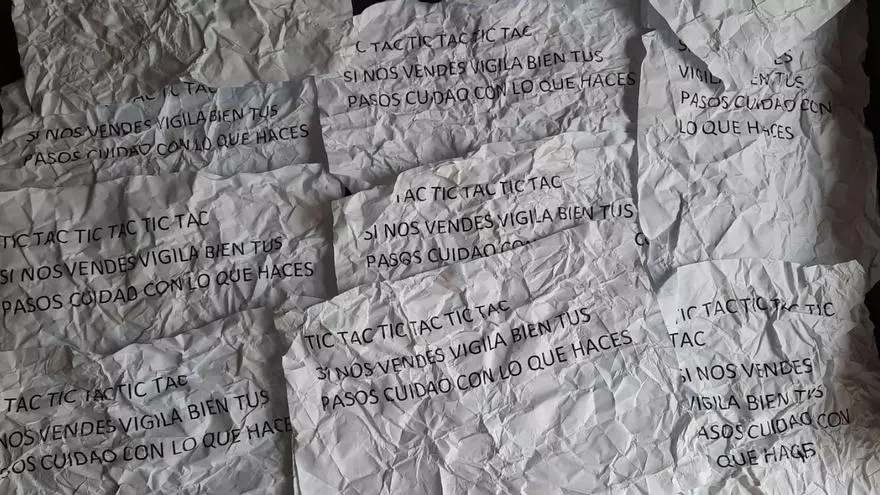 C TAC TIC TAC TIC TAC
SI NOS VENDES VIGILA BIEN TUS
PASOS CUIDAO CON LO QUE HACES
TAC TIC TAC
SI NOS VENDES VIGILA BIEN TUS
PASOS CUIDAO CON LO QUE HACES
VIGIL EN TUS
PASOS CUIDAO CON
LO QUE HACES
TIC TAC TIC TAC TIC TAC
SI NOS VENDES VIGILA BIEN TUS
PASOS CUIDAO CON LO QUE HACES
TAC TIC TAC TIC TAC
SI NOS VENDES VIGILA BIEN TUS
PASOS CUIDAO CON
TIC TAC TIC TAC TIC TAC
SI NOS VENDES VIGILA BIEN TUS
PASOS CUIDAO CON LO QUE HACES
TIC TAC TIC TAC TIC
TAC
SI NOS VENDES
VIGILA BIEN TUS
PASOS CUIDAO CON
QUE HACES
TAC TIC TAC TIC TAC
NOS VENDES VIGILA BIEN TUS
SOS CUIDAO CON LO QUE HACE